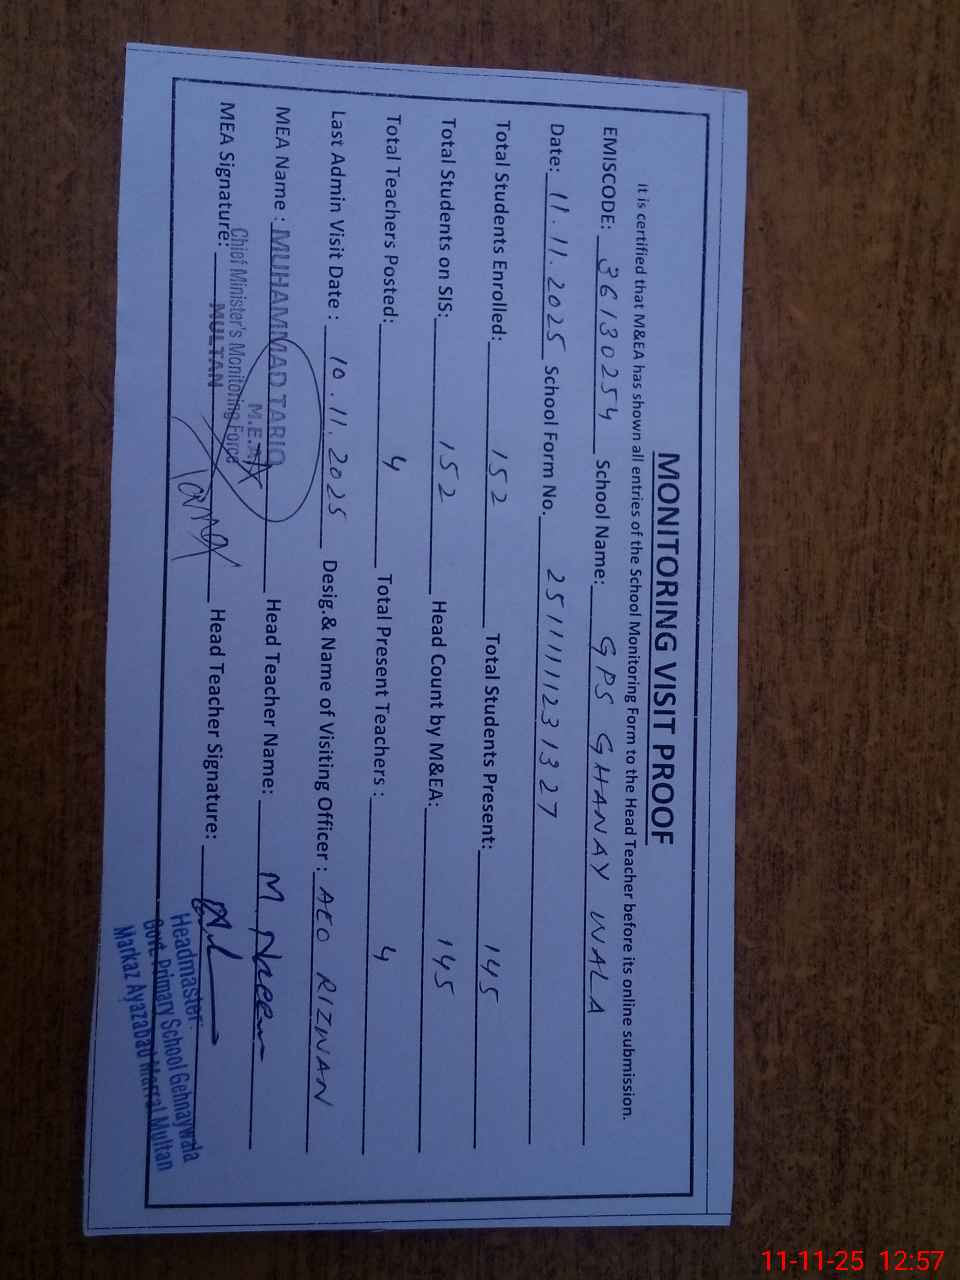 MONITORING VISIT PROOF
It is certified that M&EA has shown all entries of the School Monitoring Form to the Head Teacher before its online submission.
EMISCODE: 36130254 School Name: GPS GHANAY WALA
Date: 11.11.2025 School Form No. 2511111231327
Total Students Enrolled: 152 Total Students Present: 145
Total Students on SIS: 152 Head Count by M&EA: 145
Total Teachers Posted: 4 Total Present Teachers : 4
Last Admin Visit Date : 10.11.2025 Desig.& Name of Visiting Officer : AEO RIZWAN
MEA Name : MUHAMMAD TARIQ Head Teacher Name: M. Naeem
M.E.A
Chief Minister's Monitoring Force
MEA Signature: MULTAN Head Teacher Signature:
Headmaster:
Govt. Primary School Gehnaywala
Markaz Ayazabad Marral Multan
11-11-25 12:57